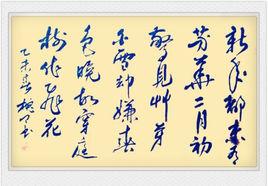 新年都未有
芳華二月初
驚見艸芽
白雪却嫌春
色晚故穿庭
樹作飛花
乙未春